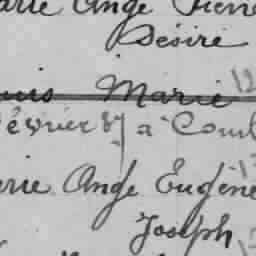 arie Ange Pierre
Désiré
ouis Marie 12
février 87 à Coul
erie Ange Eugène
Joseph